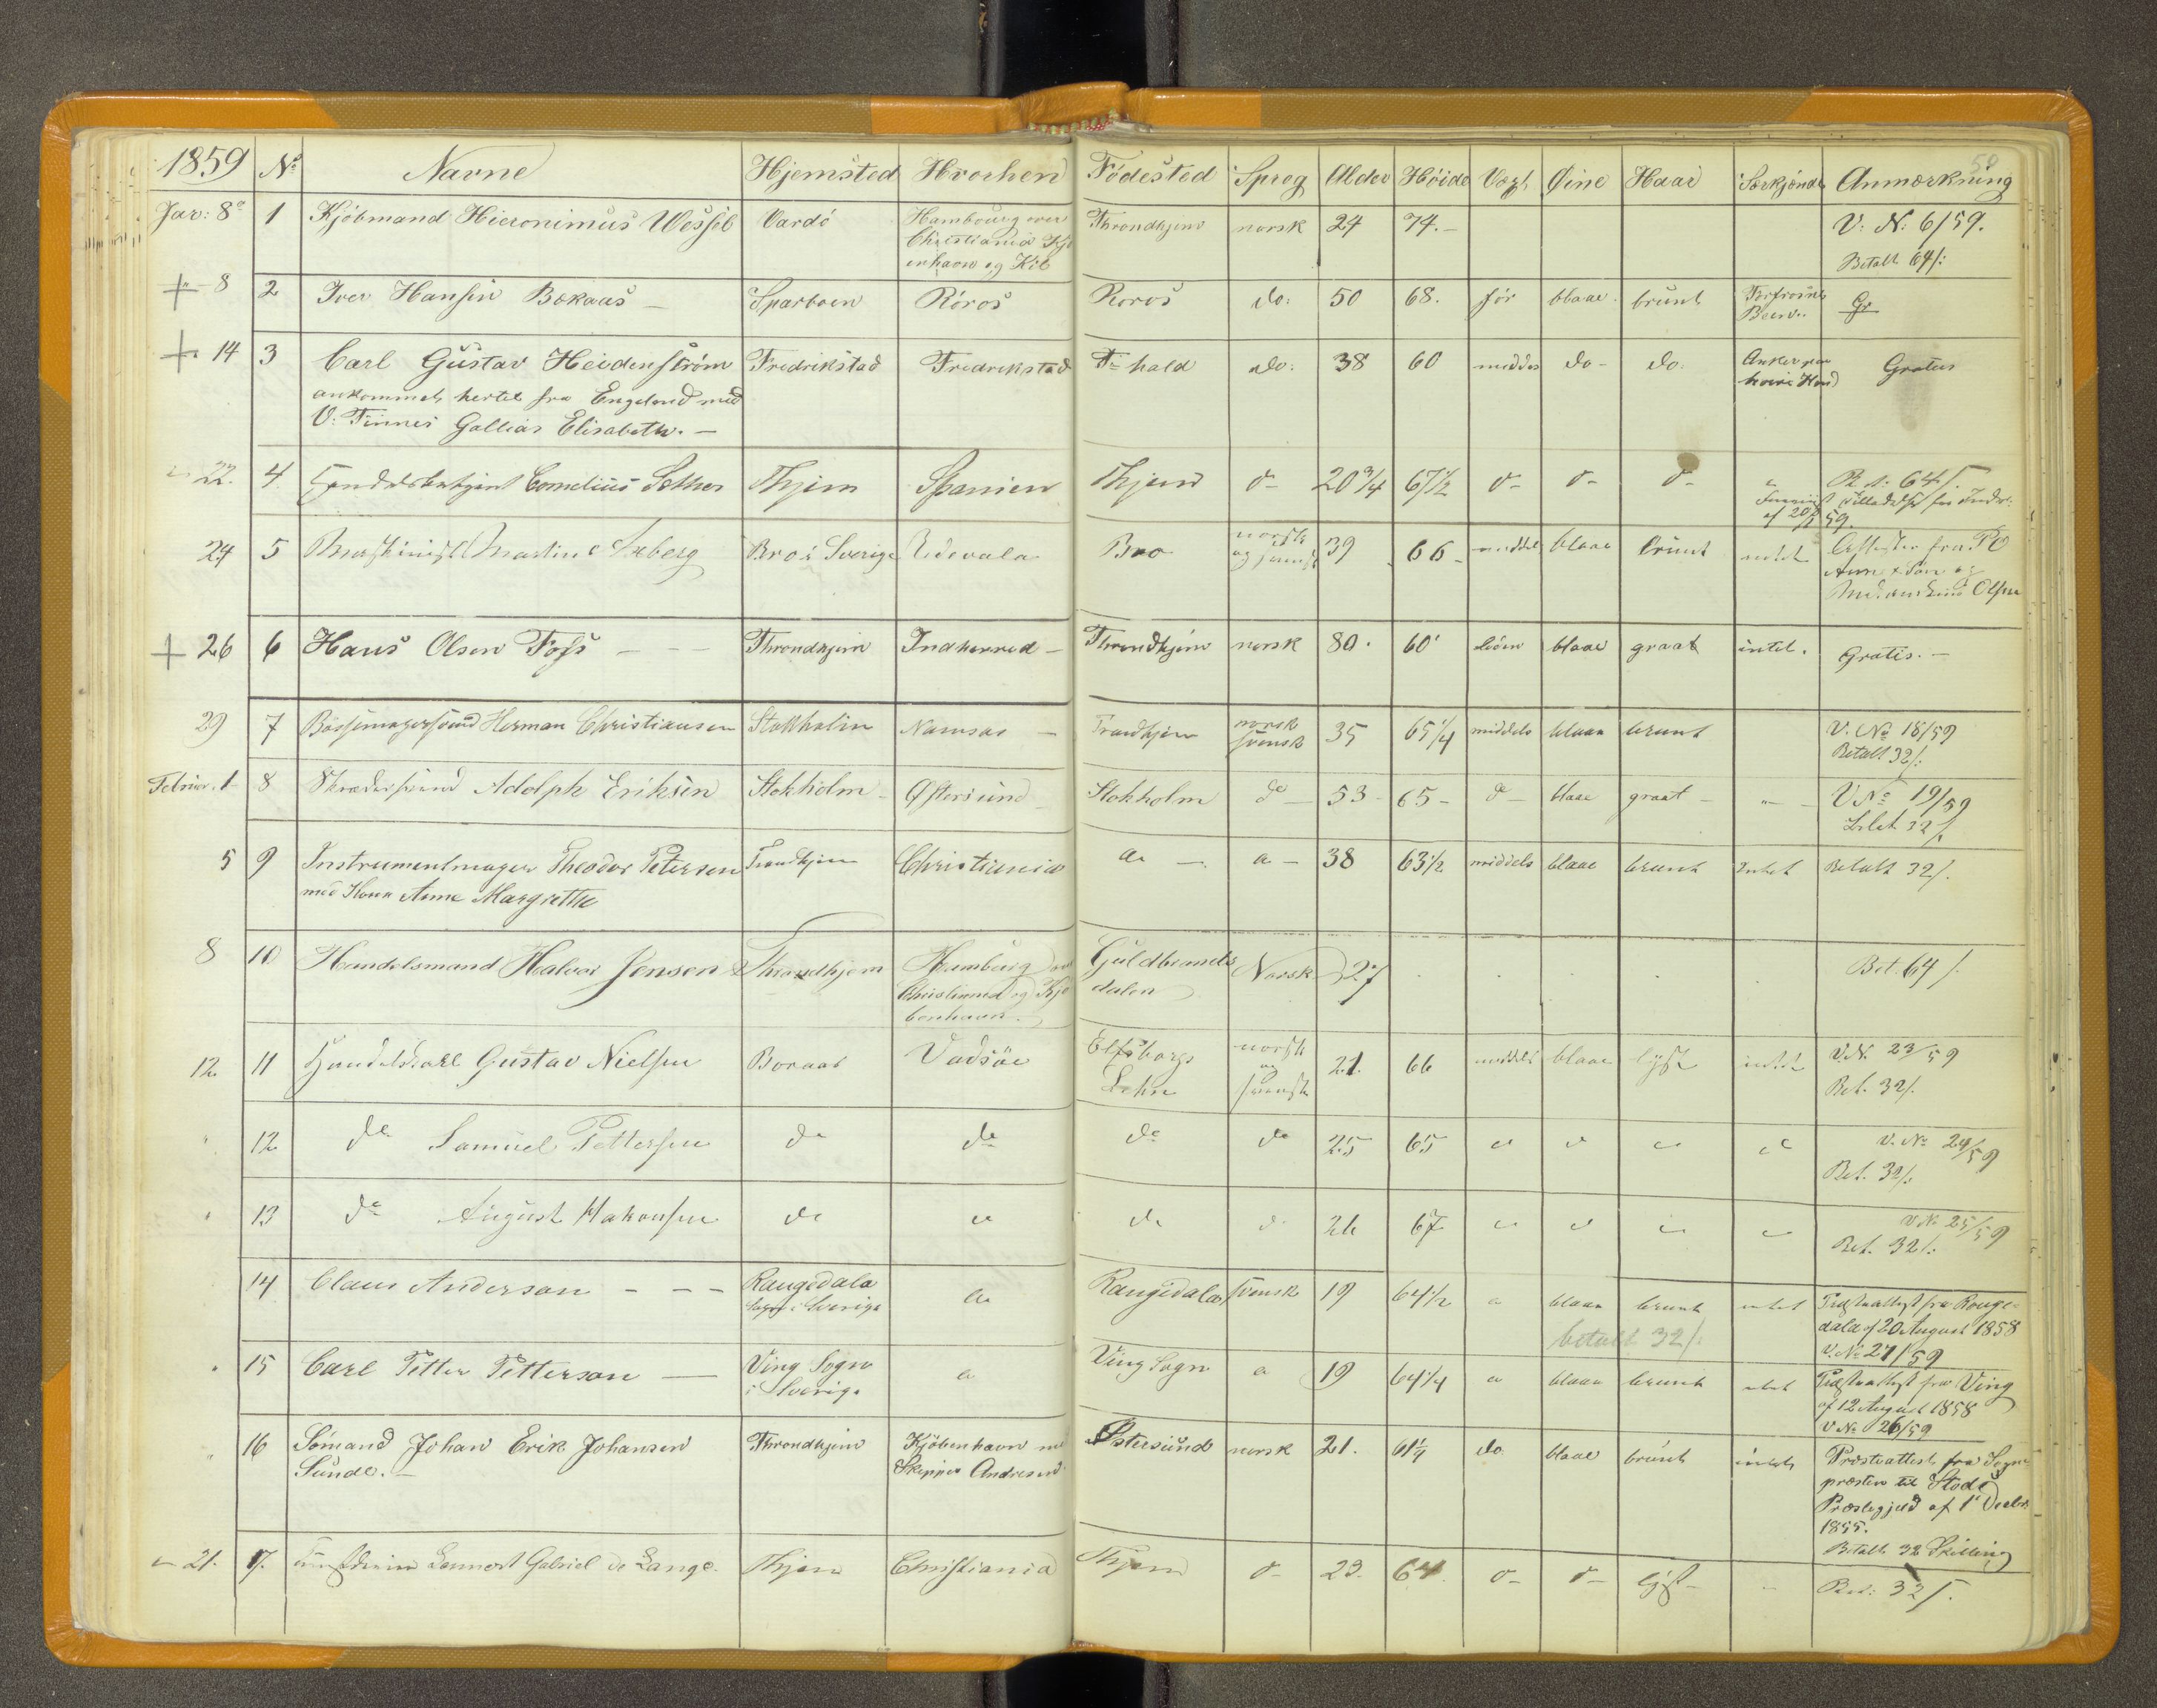 1859 No Navne Hjemsted Hvorhen Födested Sprog Alder Höide Vægt Øine Haar Særkjende Anmærkning
Jar: 8 1 Kjöbmand Hieronimus Wessel Vardö Hambourg over Throndhjem norsk 24 74.- V: N: 6/59.
Christiania Kjö
enhavn og Kil Betalt 64/:
+ " 8 2 Iver Hansen Bokaas - Sparboen Röros Roros do: 50 68. før blaae brunt Gr
+ 14 3 Carl Gustav Heidenström Fredrikstad Fredrikstad F= hald do: 38 60 middes do- do. Anker paa Gratis
ankommet hertil fra Engeland med
V. Finnes Gallias Elisabeth. -
22. 4. Cornelius Sether Thjem Spanien Thjem d- 20 3/4 67 1/2 d- d- d- " 64
24 5 Maskinist Martin Bro i Sverige Udevala Bro norsk 39 66 - middel blaae brunt intet Attester fra
og svensk
Olsen
+ 26 6 Hans Olsen Foss - - - Throndhjem Indherred - Throndhjem norsk 80. 60 blaae graat intet. Gratis. -
29 7 Bössemagersvend Herman Christiansen Stokholm Namsos - Trondhjem norsk 35 65 1/4 middels blaae brunt V. No 18/59
svensk Betalt 32/:
Februar. 1 8 Skrædersvend Adolph Eriksen Stokholm - Østersund - Stokholm do - 53 - 65 - d - blaae graat - " - V No 19/59
32/:
5 9 Instrumentmager Theodor Petersen Trondhjem Christiania do - do - 38 63 1/2 middels blaae brunt Intet Betalt 32/.
med Kone Anne Margrethe
8 10 Handelsmand Halvor Jensen Throndhjem Hamburg over Guldbrands Norsk 27 Bet. 64 /.
Christiania og Kjö dalen
benhavn.
12 11 Handelskarl Gustav Nielsen Boraas Vadsöe Elfsborgs norsk 21. 66 middels blaae lyst intet V.N. 23/59
Lehn og svensk Bet. 32/.
" 12 do Samuel Pettersen do do do do 25 65 " " " " V. No 24/59
Bet. 32/:
" 13 do August Hakansen do do do do 26 67 " " " " V No 25/59
Bet. 32/:
14 Claus Anderson - - - Rangedala do Rangedala svensk 19 64 1/2 " blaae brunt intet Præsteattest fra Range-
Sogn i Sverige betalt 32/: dala af 20 August 1858
V. No 27/59
" 15 Carl Petter Petterson - Ving Sogn do Ving Sogn do 19 64 1/4 " blaae brunt intet Præsteattest fra Ving
i Sverige af 12 August 1858
V No 26/59
" 16 Sömand Johan Erik Johansen Throndhjem Kjöbenhavn med Østersund norsk 21. 61 1/4 do. blaae brunt intet Præsteattest fra Sogne-
Sunde. - Skipper Andresen præsten til Stod
Præstegjeld af 1 Decbr
1855.
Betalt 32 Skilling
" 21. 17. Lennart Gabriel de Lange. Thjem Christiania Thjem d- 23. 64. d- d- lyst - " Bet: 32/.